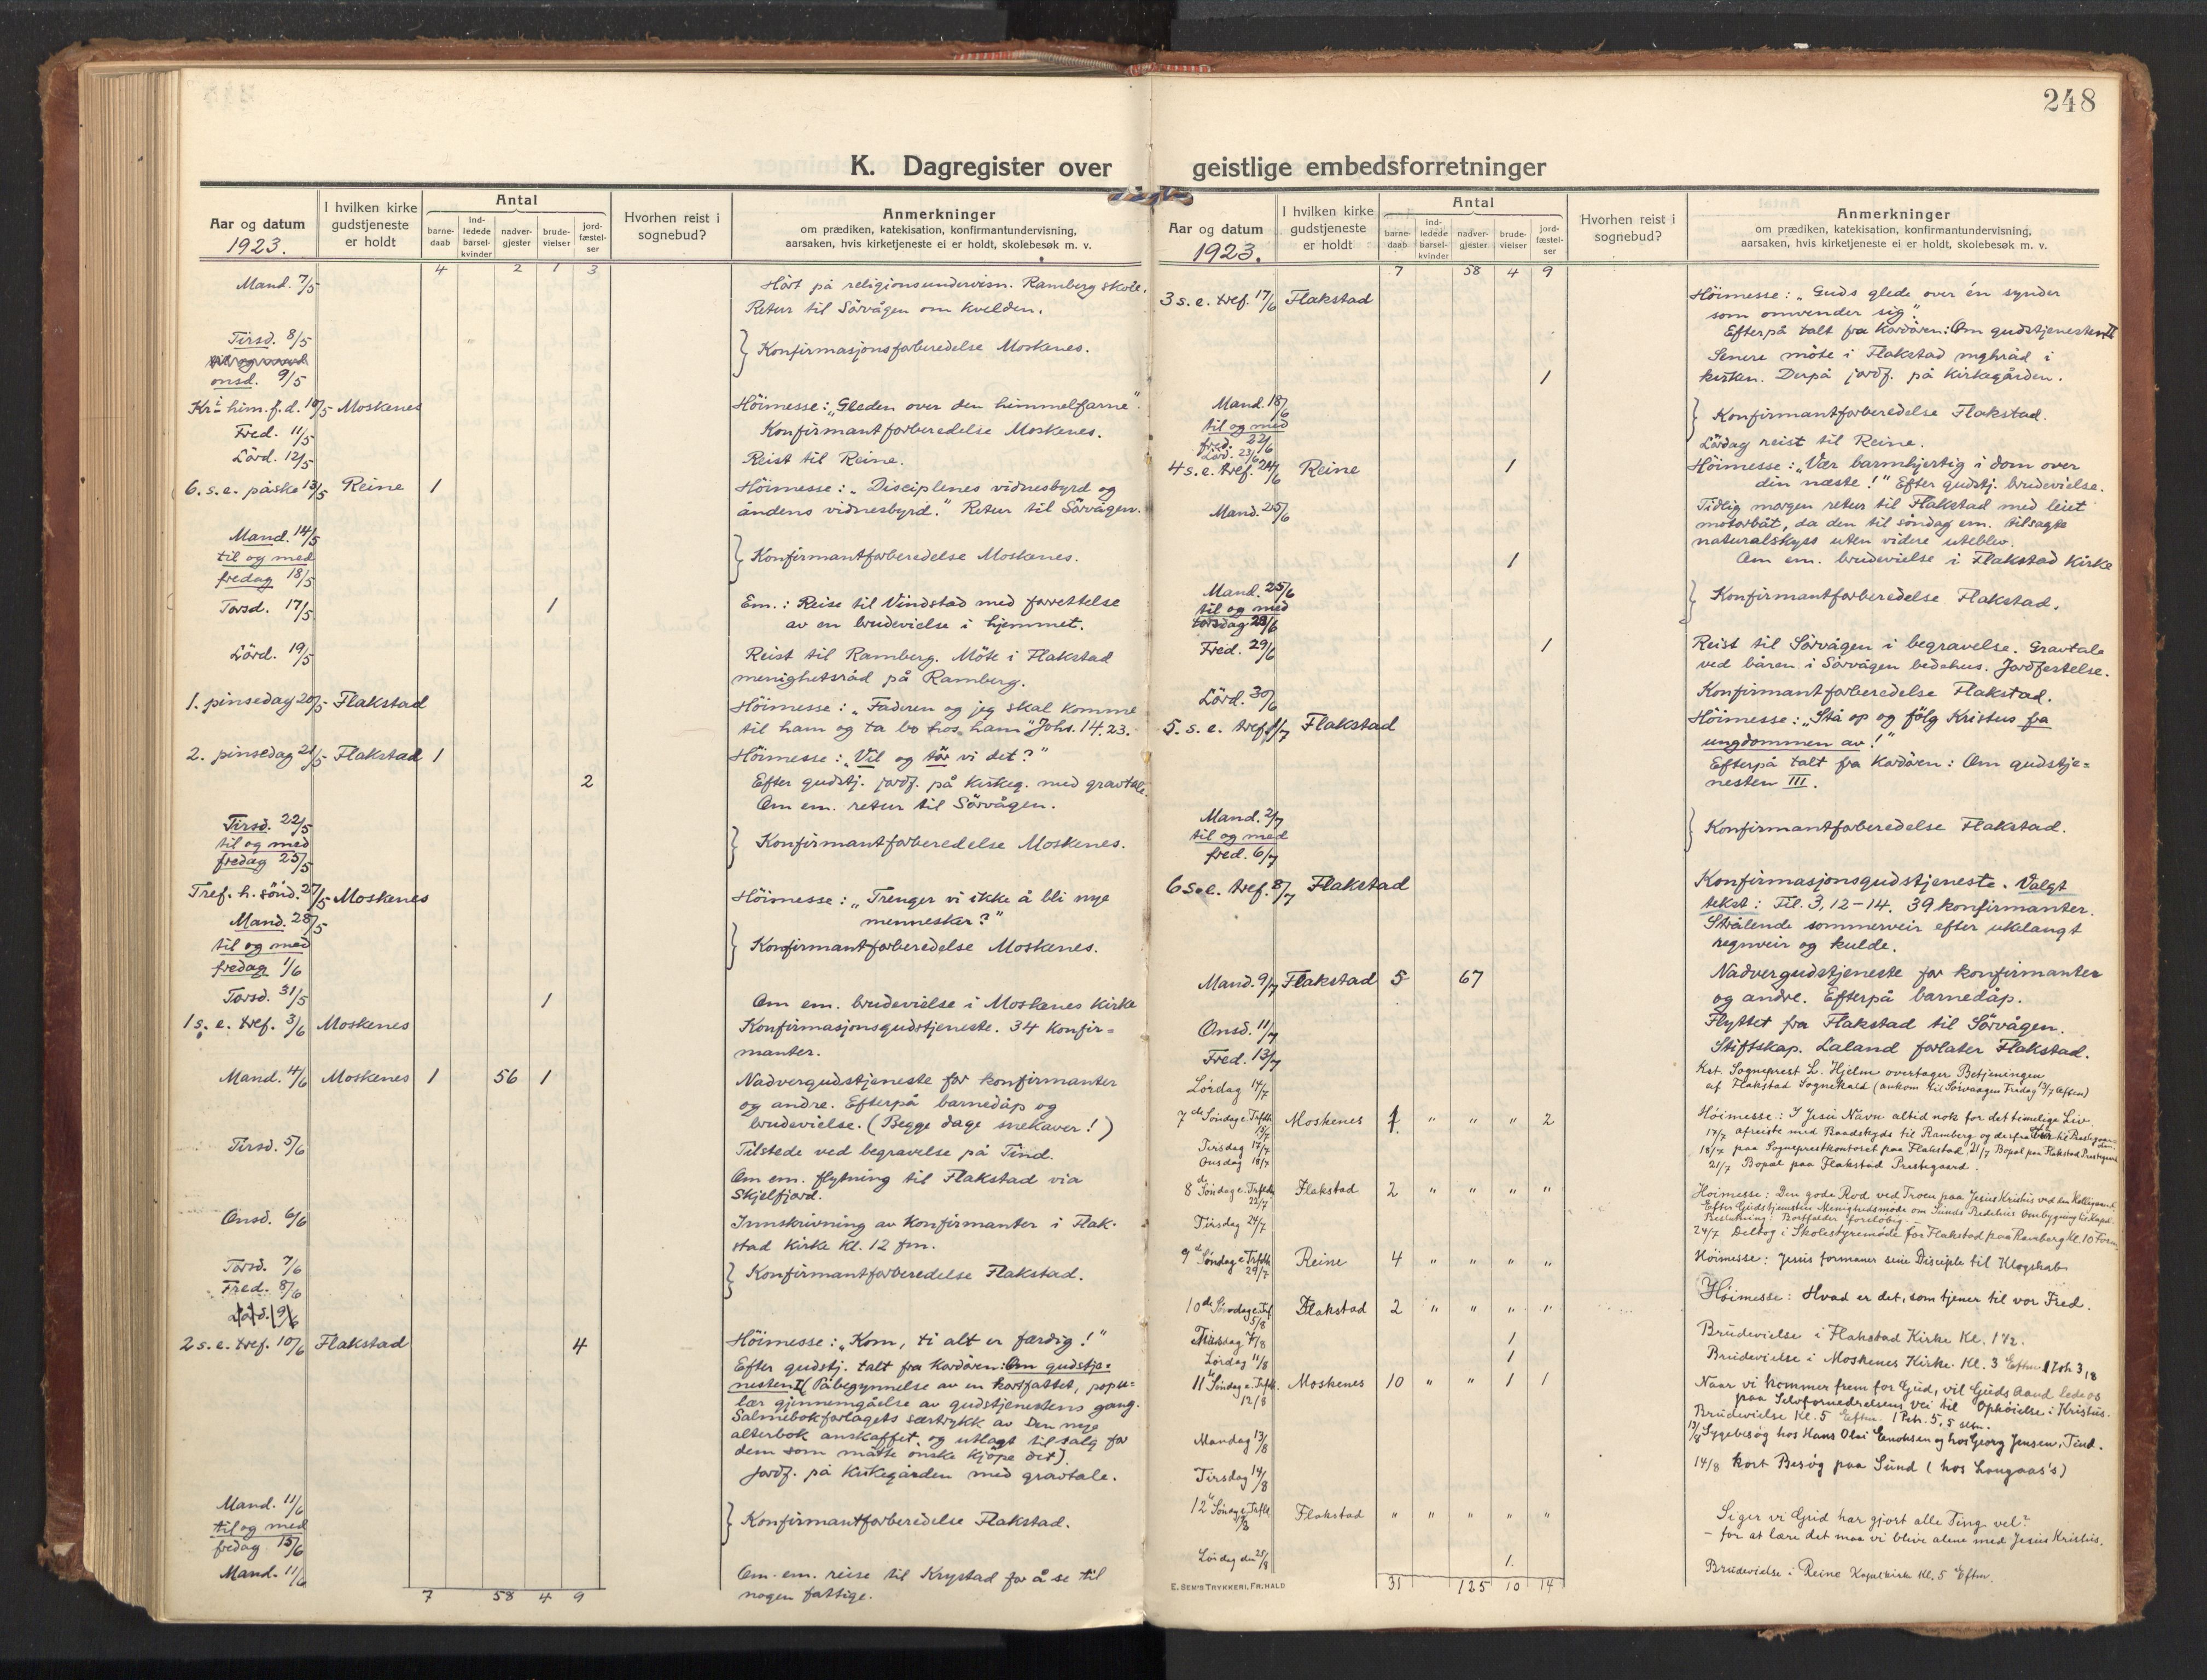 248
K. Dagregister over geistlige embedsforretninger
Aar og datum
1923.
I hvilken kirke gudstjeneste er holdt
Antal
barne-daab
ind-ledede barsel-kvinder
nadver-gjester
brude-vielser
jord-fæstel-ser
Hvorhen reist i sognebud?
Anmerkninger
om prædiken, katekisation, konfirmantundervisning,
aarsaken, hvis kirketjeneste ei er holdt, skolebesøk m. v.
4 2 1 3
Mand. 7/5 Hört på religionsundervisn. Ramberg skole.
Retur til Sörvågen om kvelden.
Tirsd. 8/5
til og med
onsd. 9/5
} Konfirmasjonsforberedelse Moskenes.
Kr. him.f.d. 10/5 Moskenes Höimesse: „Gleden over den himmelfarne".
Fred. 11/5 Konfirmantforberedelse Moskenes.
Lörd. 12/5 Reist til Reine.
6. s.e. påske 13/5 Reine 1 Höimesse: „Disciplenes vidnesbyrd og
åndens vidnesbyrd." Retur til Sörvågen.
Mand. 14/5
til og med
fredag 18/5
} Konfirmantforberedelse Moskenes.
Torsd. 17/5 1 Em.: Reise til Vindstad med forrettelse
av en brudevielse i hjemmet.
Lörd. 19/5 Reist til Ramberg. Möte i Flakstad
menighetsråd på Ramberg.
1. pinsedag 20/5 Flakstad Höimesse: „Faderen og jeg skal komme
til ham og ta bo hos ham" Johs. 14.23.
2. pinsedag 21/5 Flakstad 1 Höimesse: „Vil og tör vi det?"
2 Efter gudstj. jordf. på kirkeg. med gravtale.
Om em. retur til Sörvågen.
Tirsd. 22/5
til og med
fredag 25/5
} Konfirmantforberedelse Moskenes.
Tref. h. sönd. 27/5 Moskenes Höimesse: „Trenger vi ikke å bli nye
mennesker?"
Mand. 28/5
til og med
fredag 1/6
} Konfirmantforberedelse Moskenes.
Torsd. 31/5 1 Om em. brudevielse i Moskenes Kirke
1 s. e. tref. 3/6 Moskenes Konfirmasjonsgudstjeneste. 34 Konfir=
manter.
Mand. 4/6 Moskenes 1 56 1 Nadvergudstjeneste for konfirmanter
og andre. Efterpå barnedåp og
brudevielse. (Begge dage snekaver!)
Tirsd. 5/6 Tilstede ved begravelse på Tind.
Om em. flytning til Flakstad via
Skjelfjord.
Onsd. 6/6 Innskrivning av Konfirmanter i Flak-
stad Kirke Kl. 12 fm.
Torsd. 7/6
Fred. 8/6
Lörd. 9/6
} Konfirmantforberedelse Flakstad.
2 s.e. tref. 10/6 Flakstad 4 Höimesse: „Kom, ti alt er færdig!"
Efter gudstj. talt fra Kordören: Om gudstje=
nesten I (Påbegynnelse av en kortfattet, popu=
lær gjennemgåelse av gudstjenestens gang.
Salmebokforlagets særtrykk av Den nye
alterbok anskaffet og utlagt til salg for
dem som måtte önske kjöpe det).
Jordf. på Kirkegården med gravtale.
Mand. 11/6
til og med
fredag 15/6
} Konfirmantforberedelse Flakstad.
Mand. 11/6 Om em. reise til Krystad for å se til
nogen fattige.
7 58 4 9
Aar og datum
1923.
I hvilken kirke gudstjeneste er holdt
Antal
barne-daab
ind-ledede barsel-kvinder
nadver-gjester
brude-vielser
jord-fæstel-ser
Hvorhen reist i sognebud?
Anmerkninger
om prædiken, katekisation, konfirmantundervisning,
aarsaken, hvis kirketjeneste ei er holdt, skolebesøk m. v.
7 58 4 9
3 s.e. tref. 17/6 Flakstad Höimesse: „Guds glede over én synder
som omvender sig".
Efterpå talt fra Kordören: Om gudstjenesten II
Senere möte i Flakstad mghråd i
1 kirken. Derpå jordf. på Kirkegården.
Mand. 18/6
til og med
fred. 22/6
} Konfirmantforberedelse Flakstad.
Lörd. 23/6 Lördag reist til Reine.
4 s.e. tref. 24/6 Reine 1 Höimesse: „Vær barmhjertig i dom over
din næste!" Efter gudstj. brudevielse.
Mand. 25/6 Tidlig morgen retur til Flakstad med leiet
motorbåt, da den til söndag em. tilsagte
naturalskyss uten videre uteblev.
1 Om em. brudevielse i Flakstad Kirke
Mand. 25/6
til og med
torsdag 28/6
} Konfirmantforberedelse Flakstad.
Fred. 29/6 1 Reist til Sörvågen i begravelse. Gravtale
ved båren i Sörvågen bedehus. Jordfestelse.
Lörd. 30/6 Konfirmantforberedelse Flakstad.
5. s. e. tref. 1/7 Flakstad Höimesse: „Stå op og fölg Kristus fra
ungdommen av!"
Efterpå talt fra Kordören: Om gudstje=
nesten III.
Mand. 2/7
til og med
fred. 6/7
} Konfirmantforberedelse Flakstad.
6 s.e. tref. 8/7 Flakstad Konfirmasjonsgudstjeneste. Valgt
tekst: Fil. 3, 12-14. 39 konfirmanter.
Strålende sommerveir efter ukelangt
regnveir og kulde.
Mand. 9/7 Flakstad 5 67 Nadvergudstjeneste for konfirmanter
og andre. Efterpå barnedåp.
Onsd. 11/7 Flyttet fra Flakstad til Sörvågen.
Fred. 13/7 Stiftskap. Laland forlater Flakstad.
Lördag 14/7 Kst. Sogneprest L. Hjelm overtager Betjeningen
af Flakstad Sognekald (ankom til Sörvaagen Fredag 13/7 aften)
7de Söndag e. Trefdh. 15/7 Moskenes 1 " " " 2 Höimesse: I Jesu Navn altid nok for det timelige Liv.
Tirsdag 17/7 17/7 afreiste med Baadskyds til Ramberg og derfra
Onsdag 18/7 18/7 paa Sogneprestkontoret paa Flakstad. 21/7 Bopæl paa Flakstad Prestegaard
21/7 Bopæl paa Flakstad Prestegaard.
8de Söndag e. Trefdh. 22/7 Flakstad 2 " " " " Höimesse: Den gode Rod ved Troen paa Jesus Kristus
Efter Gudstjenesten Menighedsmöde om Sunds Bedehus Ombygning til Kapel.
Beslutning: Bortfalder foreløbig.
Tirsdag 24/7 24/7 Deltog i Skolestyremöde for Flakstad paa Ramberg Kl. 10 Form.
9de Söndag e. Trefdh. 29/7 Reine 4 " " " " Höimesse: Jesus formaner sine Disciple til Klogskab
10de Söndag e. Tref. 5/8 Flakstad 2 " " " " Höimesse: Hvad er det, som tjener til vor Fred.
Tirsdag 7/8 1 Brudevielse i Flakstad Kirke Kl. 1½.
Lördag 11/8 1 Brudevielse i Moskenes Kirke Kl. 3 Eftm. 1 Joh 3,18
11te Söndag e. Trefdh. 12/8 Moskenes 10 " " 1 1 Naar vi kommer frem for Gud, vil Guds Aand lede os
paa Selvfornedrelsens vei til Ophöielse i Kristus.
Brudevielse Kl. 5 Eftm. 1 Petr. 5, 5
Mandag 13/8 13/8 Sygebesög hos Hans Olai Enoksen og hos Georg Jensen, Tind.
Tirsdag 14/8 14/8 kort Besög paa Sund (hos Langaas's)
12te Söndag e. Trefdh. Flakstad " " " " " Siger vi Gud har gjort alle Ting vel?
– for at lære det maa vi blive alene med Jesus Kristus.
Lördag den 25/8 1. Brudevielse i Reine Kapelkirke Kl. 5 Eftm.
31 125 10 14
E. SEM'S TRYKKERI, FR.HALD